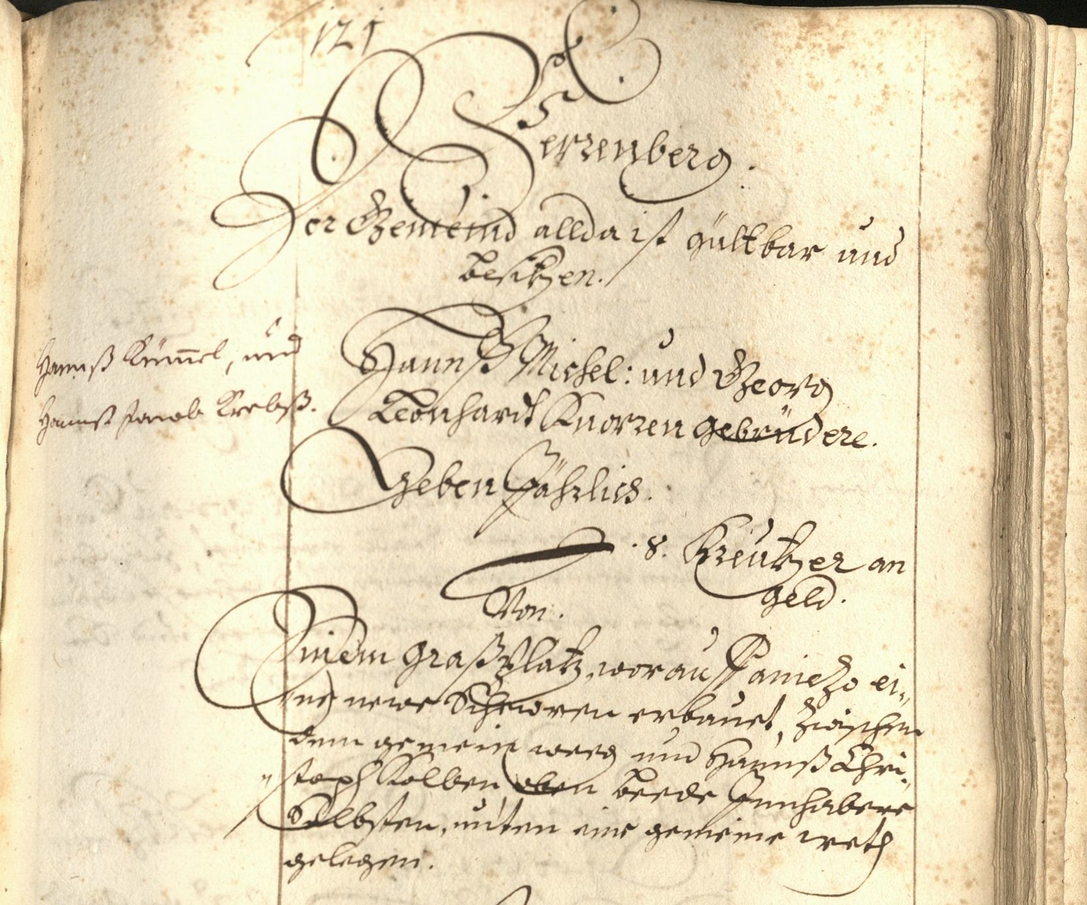 121
Herrenberg.
Der Gemeind allda ist gültbar und
besitzen.
Hannß Kümmel, und
Hannß Jacob Krebß.
Hannß Michel: und Georg
Leonhardt Knorren gebrüdere.
Geben Jährlich.
8. Kreutzer an
geld.
Von.
Einem graßplatz, worauf sie ei-
ne newe Schewren erbauet, zwischen
dem gemein weeg und Hannß Chri-
stoph Kolben oben beede Innhabere
Selbsten, unten eine gemeine
gelegen.